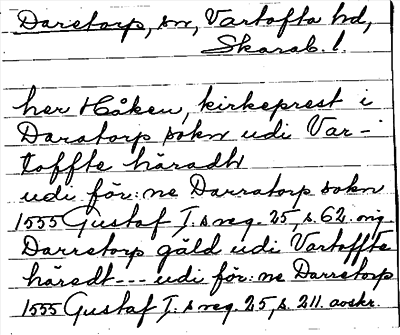 Daretorp, sn, Vartofta hd,
Skarab. l.
her Håken, kirkeprest i
Daratorp sokn udi Var-
toffte häradh
udi för: ne Darratorp sokn
1555 Gustaf I:s reg. 25, s. 62. orig.
Darretorp gäld udi Vartoffte
häredt --- udi för: ne Darretorp
1555 Gustaf I:s reg. 25, s. 211. avskr.